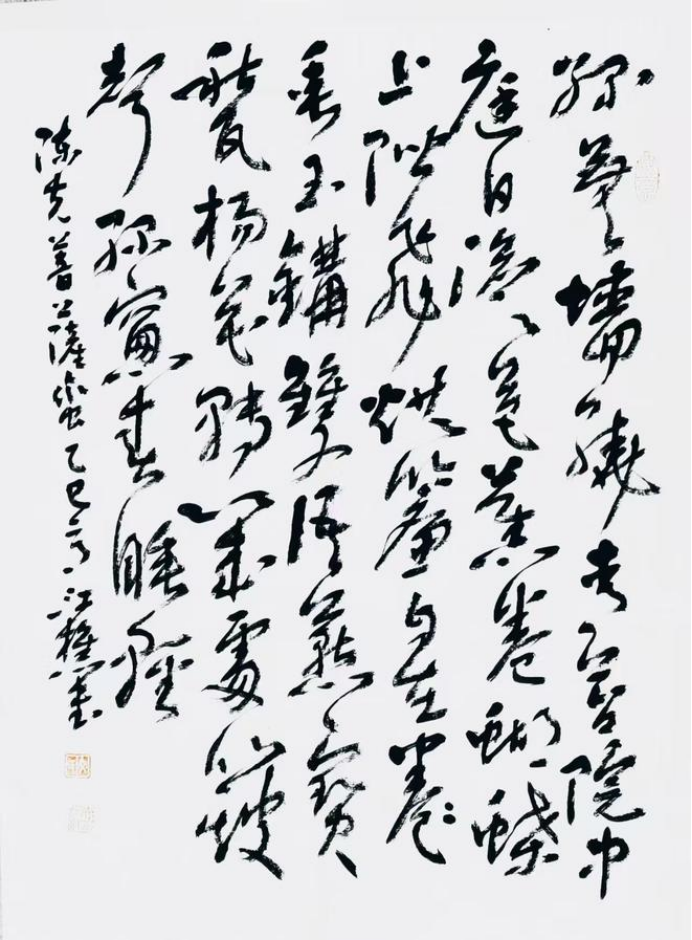 緑蕪墙繞青苔院中
庭日澹芭蕉卷蝴蝶
上階飛烘簾自在卷
垂玉鈎雙語燕寶
甃楊花轉幾處簸
聲緑窗春睡輕
陈克菩薩蛮乙巳夏江樵書